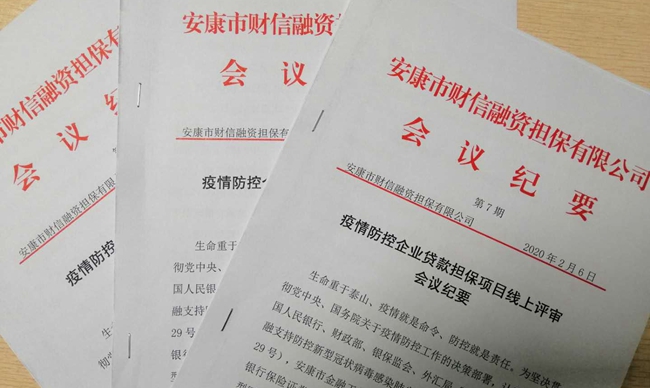 市财信融资担保有限公
会议纪
安康市财信融资担保有限公
疫情防控
安康市财信融资担
会议
安康市财信融资担保有限
疫情防控企
生命重于
彻党中央、
国人民银行
融支持防
29号)
银行保
安康市财信融资担保有限公司
会议纪要
第7期
安康市财信融资担保有限公司 2020年2月6日
疫情防控企业贷款担保项目线上评审
会议纪要
生命重于泰山、疫情就是命令、防控就是责任。为坚决贯
彻党中央、国务院关于疫情防控工作的决策部署,
国人民银行、财政部、银保监会、
融支持防控新型冠状病毒感染肺
29号),安康市金融工
银行保险证